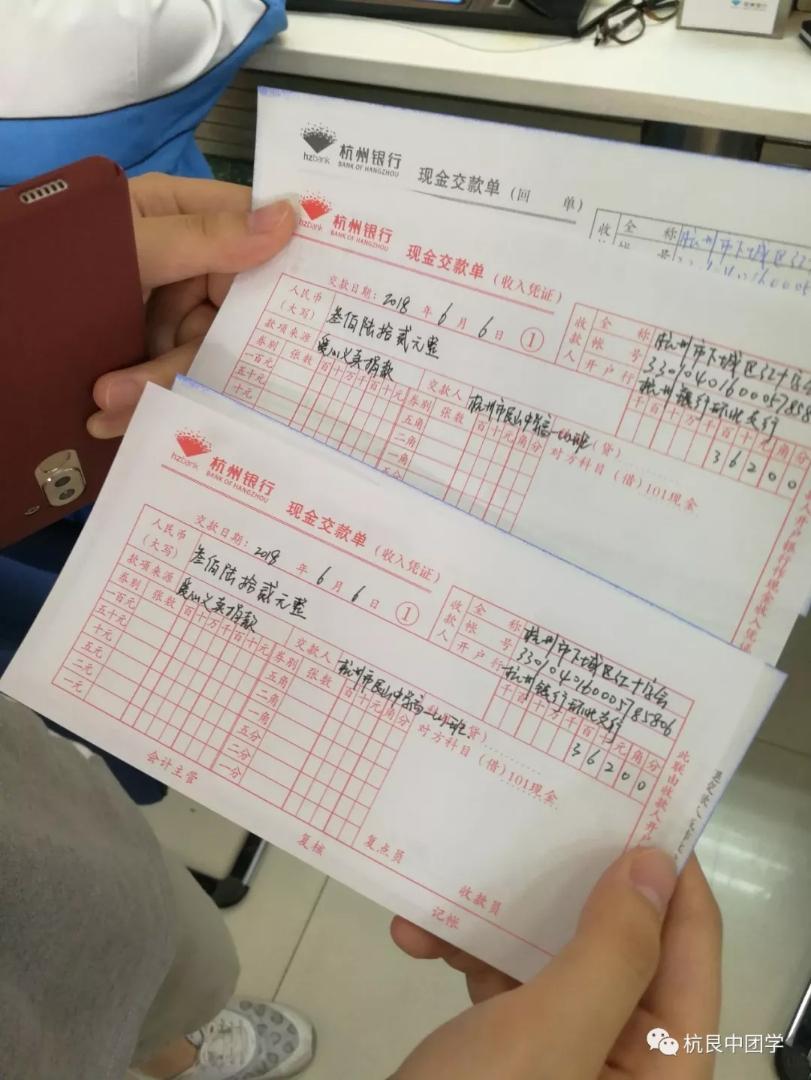 杭州银行
hzbank
BANK OF HANGZHOU
现金交款单（回 单）
全 称
杭州市下城区红十
杭州银行
hzbank
BANK OF HANGZHOU
现金交款单（收入凭证）
交款日期：2018 年 6 月 6 日 ①
人民币
（大写）
叁佰陆拾贰元整
款项来源
爱心义卖捐款
交款人
杭州市艮山中学高一(4)班
收款人
全 称
杭州市下城区红十字会
帐 号
开户行
杭州银行环北支行
千百十万千百十元角分
36200
券别 张数 百十万千百十元
券别 张数 百十元角分
一百元
五十元
十元
五角
二角
一角
五分
（贷）
对方科目（借）101现金
杭州银行
hzbank
BANK OF HANGZHOU
现金交款单（收入凭证）
交款日期：2018 年 6 月 6 日 ①
人民币
（大写）
叁佰陆拾贰元整
款项来源
爱心义卖捐款
交款人
杭州市艮山中学高一(4)班
收款人
全 称
杭州市下城区红十字会
帐 号
3301040160005785806
开户行
杭州银行环北支行
千百十万千百十元角分
36200
券别 张数 百十万千百十元
券别 张数 百十元角分
一百元
五十元
十元
五元
二元
一元
五角
二角
一角
五分
二分
一分
（贷）
对方科目（借）101现金
此联由收款人开户
会计主管
复核
复点员
收款员
记帐
杭艮中团学